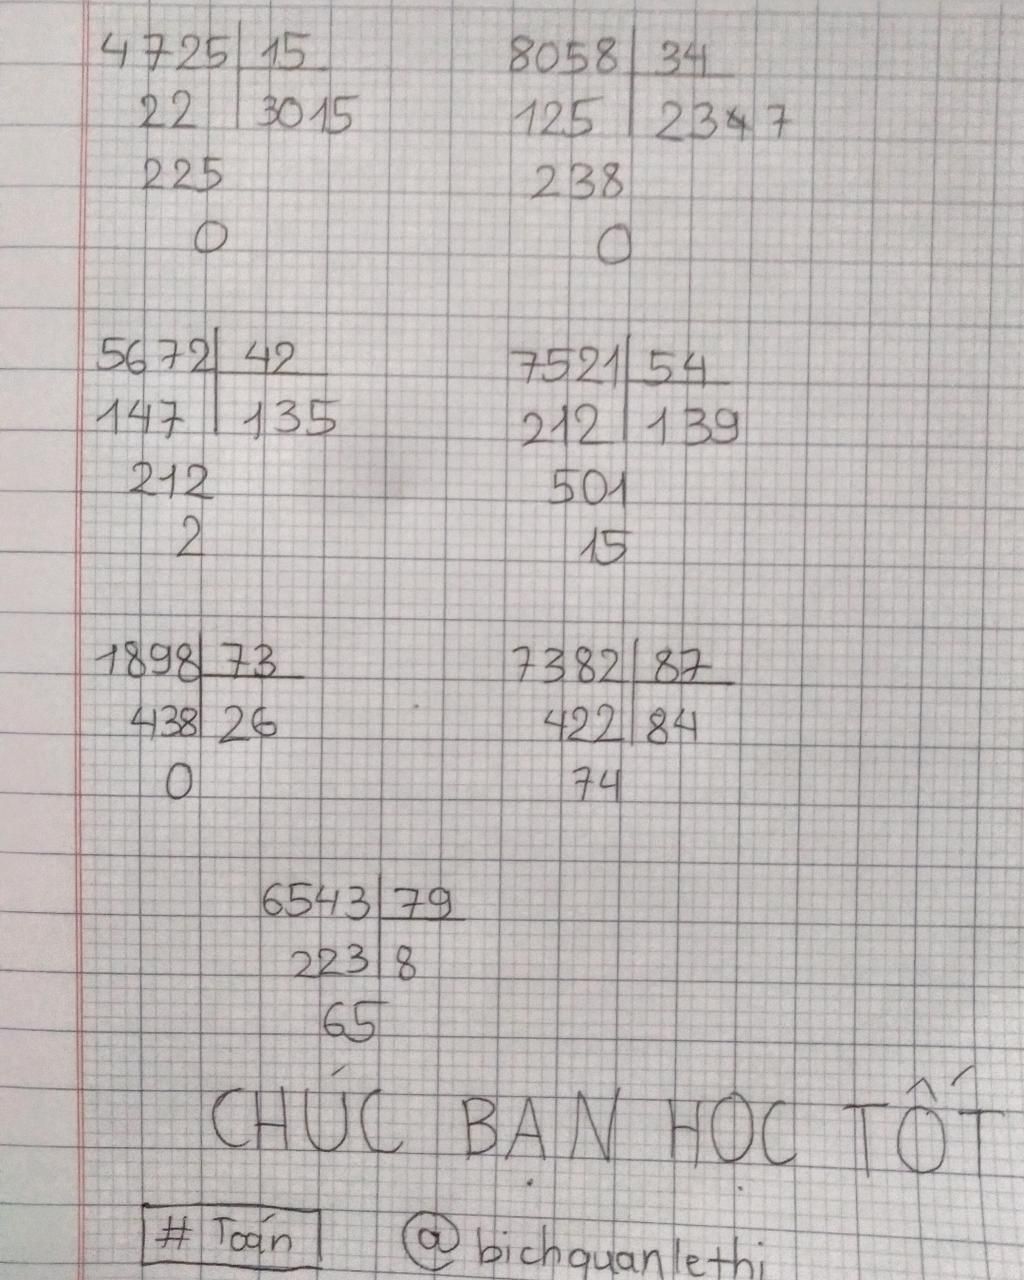 4725 15
22 3015
225
0
8058 34
125 2347
238
0
5672 42
147 135
212
2
7521 54
212 139
501
15
1898 73
438 26
0
7382 87
422 84
74
6543 79
223 8
65
CHÚC BẠN HỌC TỐT
# Toán @bichquanlethi